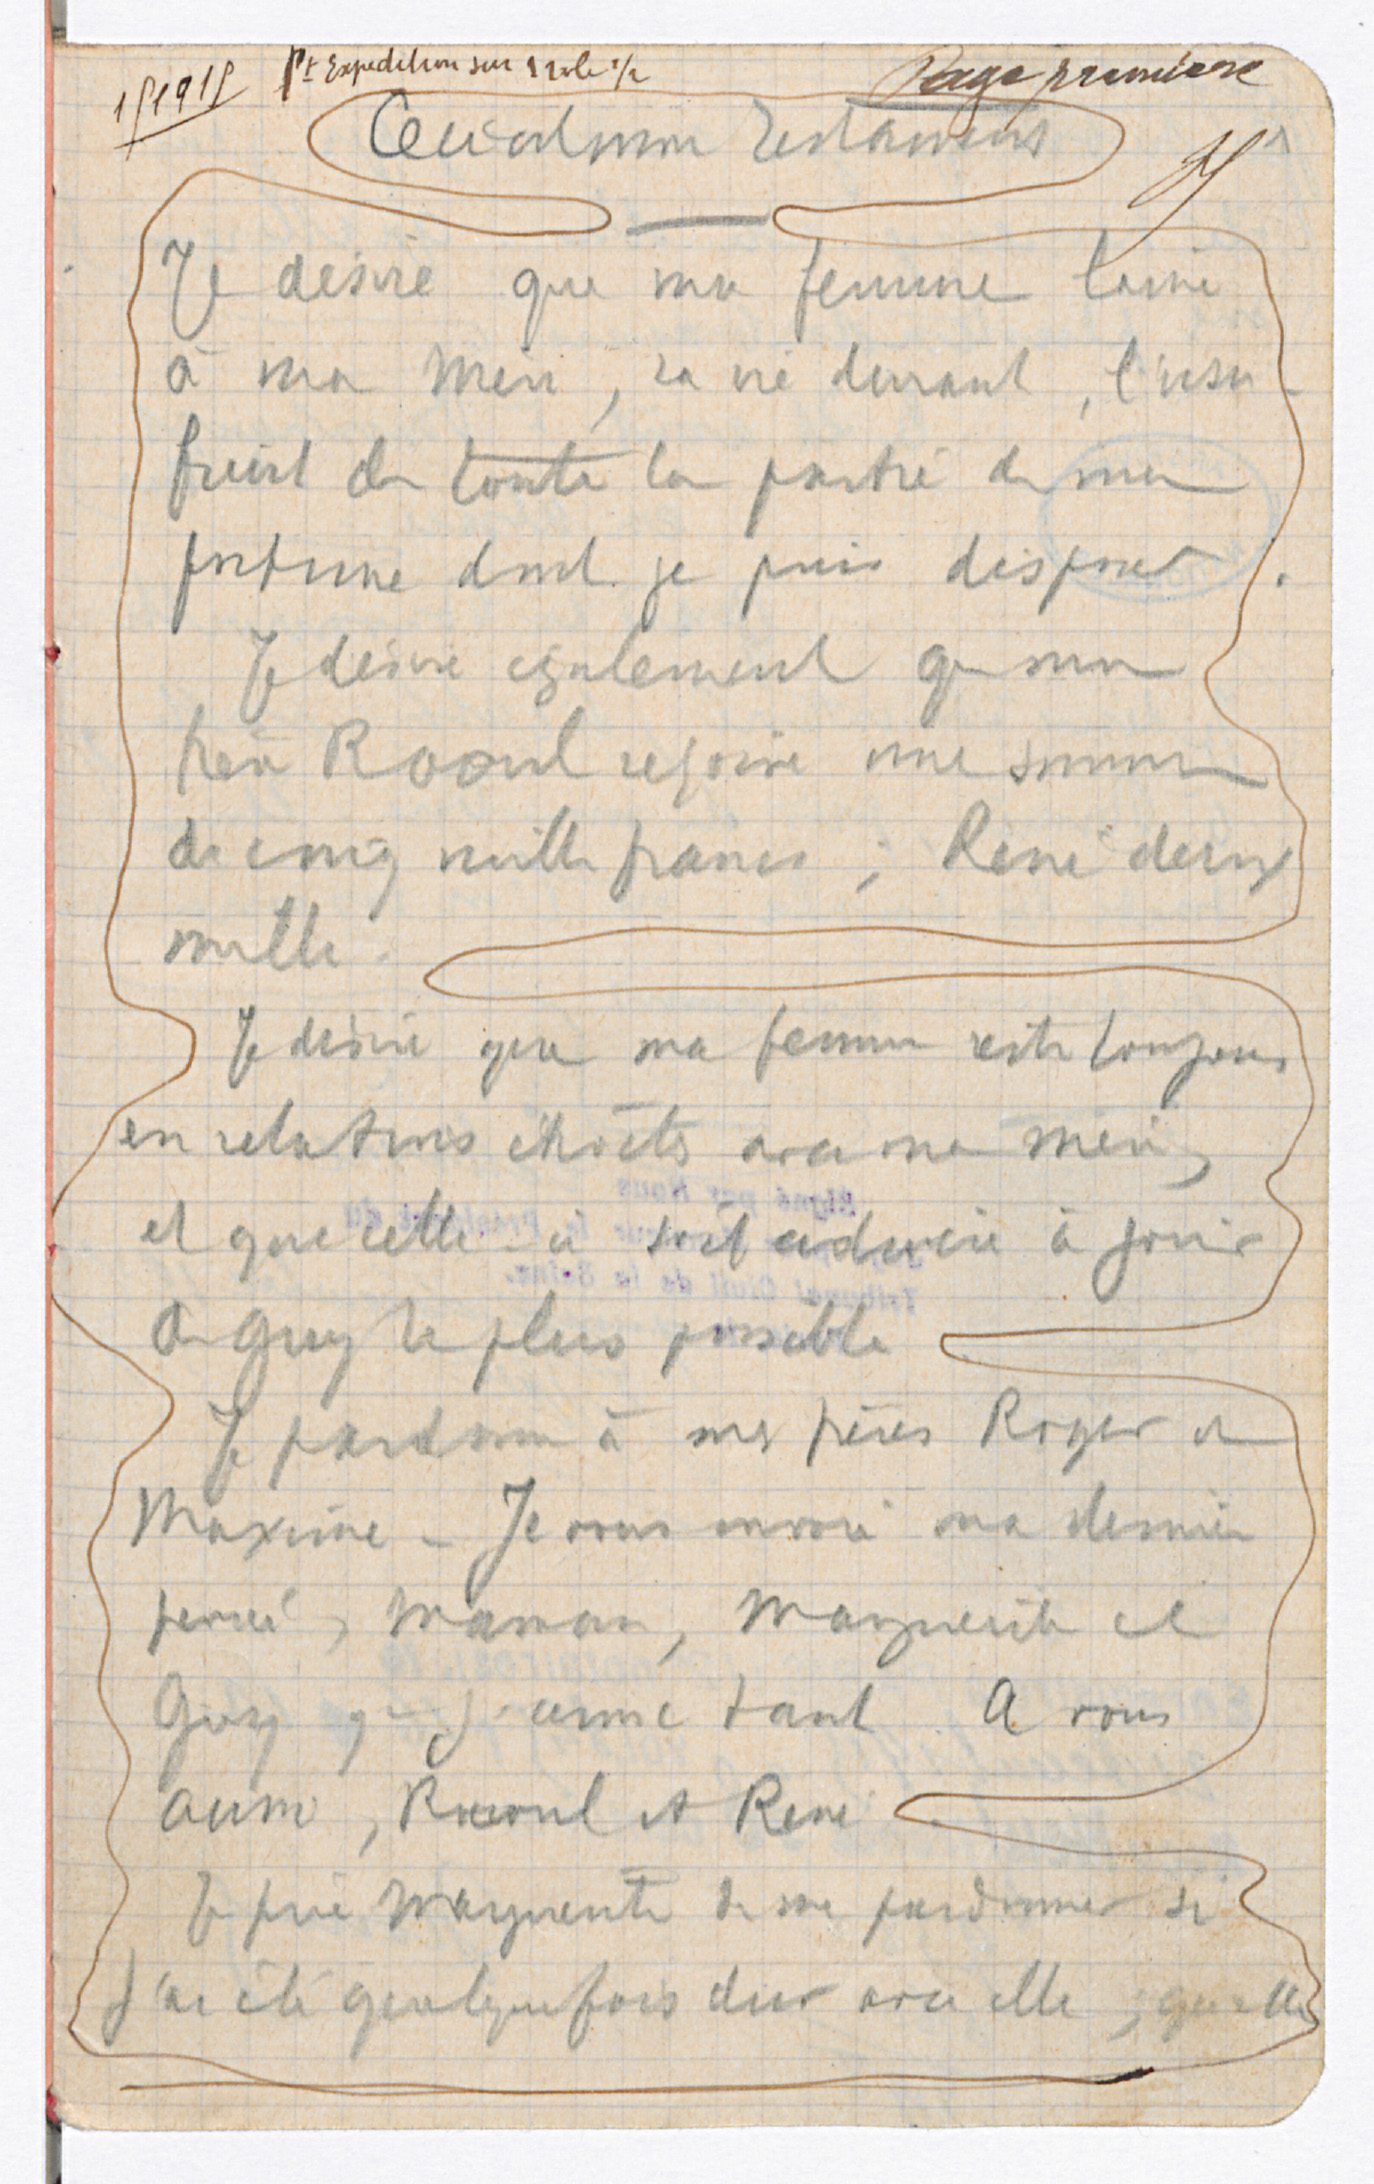 Pt Expedition sur 1 role 1/2
Page première
Ceci est mon testament
Je désire que ma femme laisse
à ma mère, sa vie durant, l'usu-
fruit de toute la partie de ma
fortune dont je puis disposer.
Je désire également que mon
frère Raoul reçoive une somme
de cinq mille francs ; René deux
mille.
Je désire que ma femme reste toujours
en relations étroites avec ma mère,
et que celle-ci soit admise à jouir
de Guy le plus possible
Je pardonne à mes frères Roger et
Maxime - Je vous envoie ma dernière
pensée, Maman, Marguerite et
Guy que j'aime tant A vous
aussi, Raoul et René
Je prie Marguerite de me pardonner si
j'ai été quelquefois dur avec elle, qu'elle